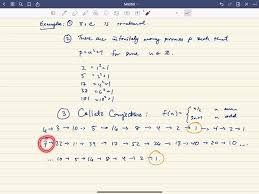 Examples: ① π+e is irrational.
② There are infinitely many primes p such that
p = n²+1 for some n ∈ ℤ.
2 = 1²+1
5 = 2²+1
17 = 4²+1
37 = 6²+1
101 = 10²+1
③ Collatz Conjecture: f(n) = { n/2 n even
3n+1 n odd
→ 10 → 5 → 16 → 8 → 4 → 2 → 1 → 4 → 2 → 1
→ 22 → 11 → 34 → 17 → 52 → 26 → 13 → 40 → 20 → 10 ...
... 10 → 5 → 16 → 8 → 4 → 2 → 1